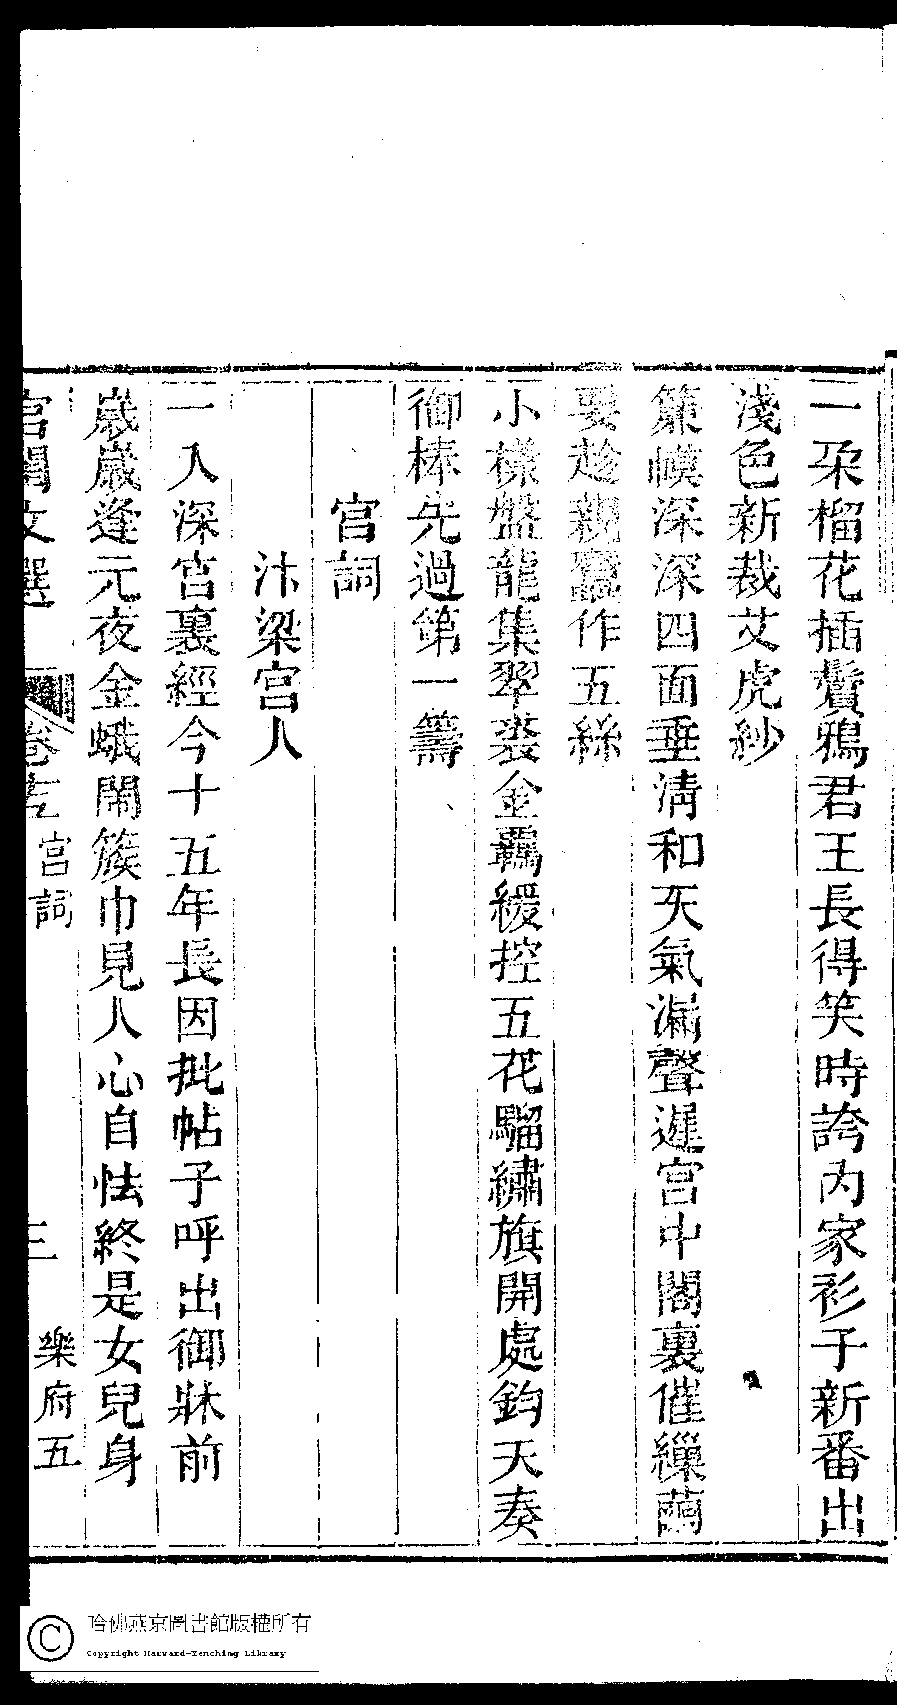 一朶榴花插鬢鴉君王長得笑時誇内家衫子新番出
淺色新裁艾虎紗
簾幙深深四面垂淸和天氣漏聲遲宮中閣裏催繰繭
要趁親蠶作五絲
小様盤龍集翠裘金羈緩控五花騮繡旗開處鈞天奏
御棒先過第一籌
宮詞
汴梁宮人
一入深宮裏經今十五年長因批帖子呼出御牀前
歲歲逢元夜金蛾鬧簇巾見人心自怯終是女兒身
宮閨文選
卷
宮詞
三
樂府五
哈佛燕京圖書館版權所有
Copyright Harvard-Yenching Library